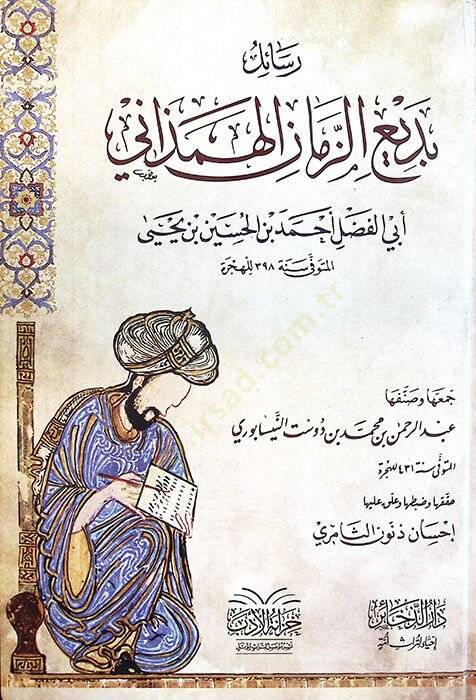 رسائل
بديع الزمان الهمذاني
أبي الفضل أحمد بن الحسين بن يحيى
المتوفى سنة ٣٩٨ للهجرة
جمعها وصنّفها
عبد الرحمن بن محمد بن دوست النيسابوري
المتوفى سنة ٤٣١ للهجرة
حققها وضبطها وعلق عليها
إحسان ذنون الثامري
دار الذخائر
خزانة الأدب
irsad.com.tr